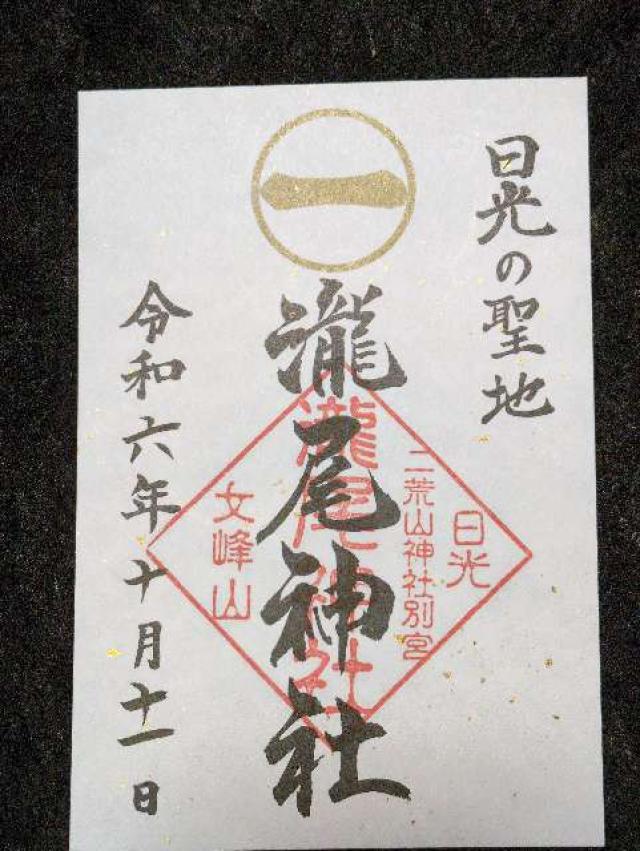 日光の聖地
一
瀧尾神社
日光
二荒山神社別宮
瀧尾神社
女峰山
令和六年十月十一日